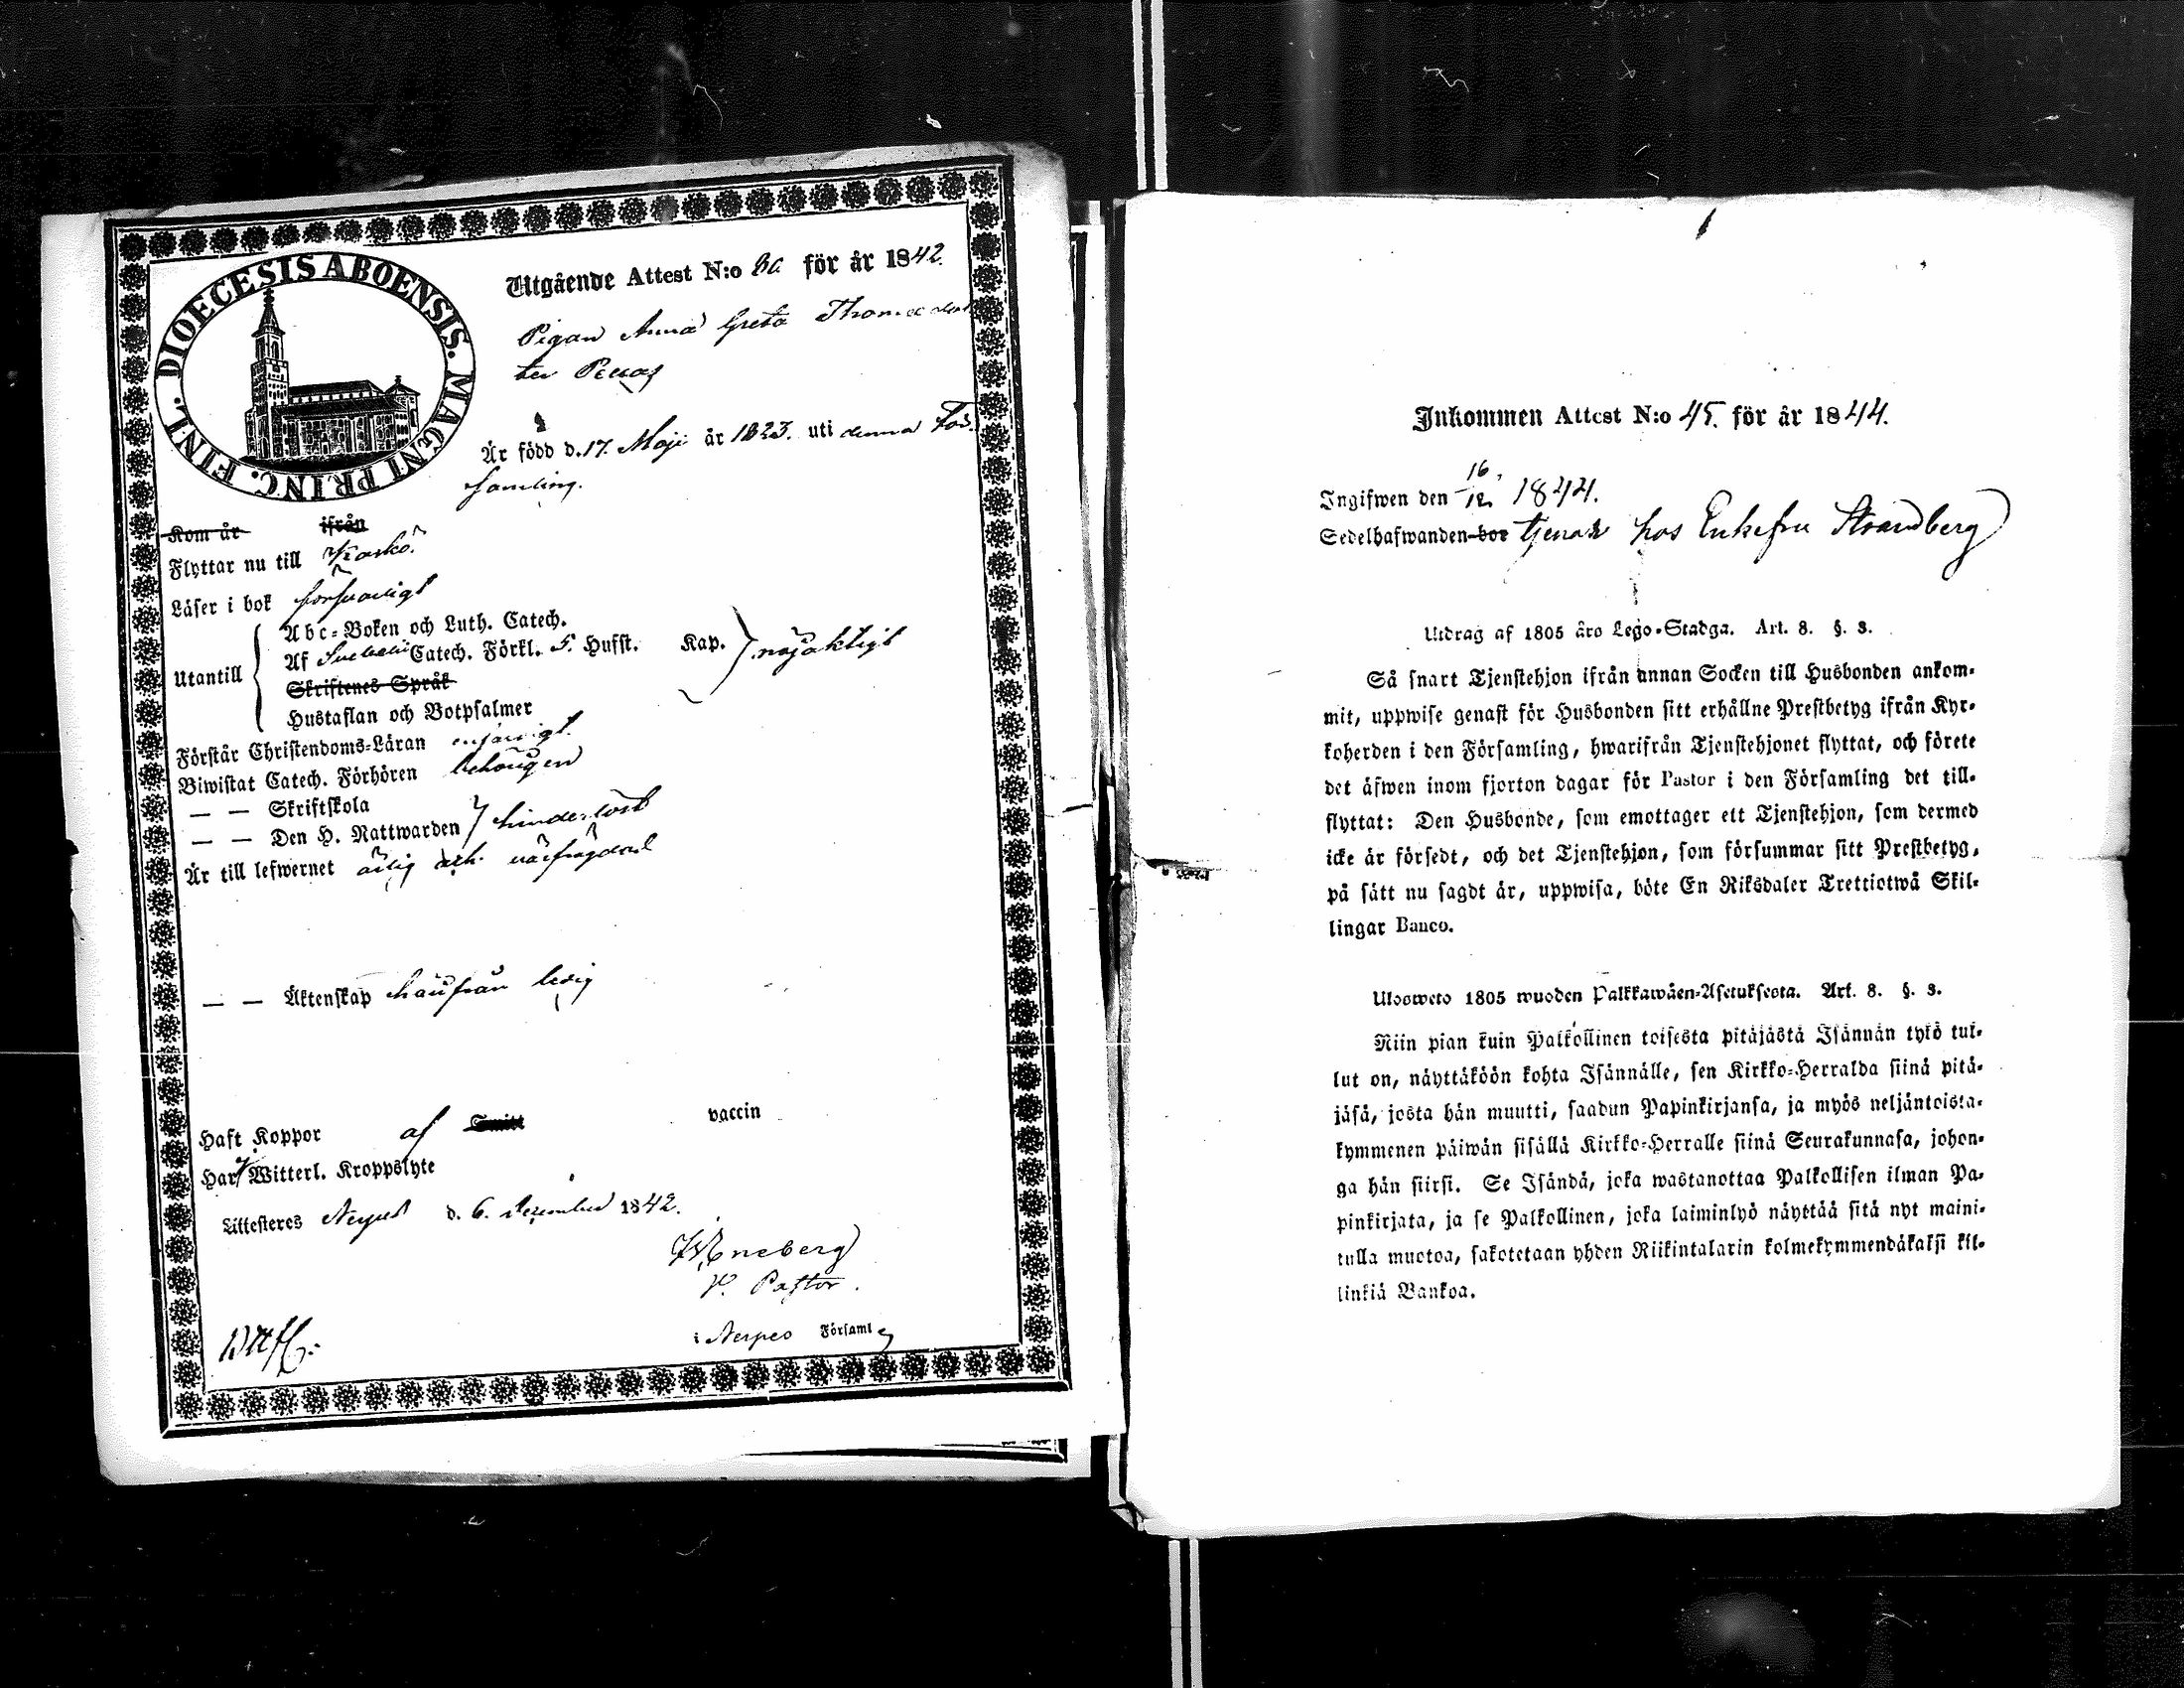 DIOECESIS ABOENSIS. MAGNI PRINC. FINL.
Utgående Attest N:o för år 1842.
Pigan Anna Greta Thomædot
ter
Är född d. 17. Maji år 1823. uti denna För-
samling.
Kom år ifrån
Flyttar nu till Kaskö.
Läser i bok försvarligt
Utantill
Abc-Boken och Luth. Catech.
Af Svebelii Catech. Förkl. 5 Hufst. Kap. nöjaktigt
Skriftenes Språk
Hustaflan och Botpsalmer
Förstår Christendoms-Läran
Biwistat Catech. Förhören behörigen
— — Skriftskola
— — Den H. Nattwarden hinderlöst
Är till lefwernet ärlig och välfrägdad
— — Äktenskap härifrån ledig
Haft Koppor af Smitt vaccin
Har Witterl. Kroppslyte
Attesteres Nerpes d. 6. December 1842.
Eneberg
V. Pastor.
i Nerpes Församl
Inkommen Attest N:o 45. för år 1844.
Ingifwen den 16/12 1844.
Sedelhafwanden bor tjenar hos Enkefru Strandberg
Utdrag af 1805 års Lego-Stadga. Art. 8. §. 3.
Så snart Tjenstehjon ifrån annan Socken till Husbonden ankom-
mit, uppwise genast för Husbonden sitt erhållne Prestbetyg ifrån Kyr-
koherden i den Församling, hwarifrån Tjenstehjonet flyttat, och förete
det äfwen inom fjorton dagar för Pastor i den Församling det till-
flyttat: Den Husbonde, som emottager ett Tjenstehjon, som dermed
icke är försedt, och det Tjenstehjon, som försummar sitt Prestbetyg,
på sätt nu sagdt är, uppwisa, böte En Riksdaler Trettiotwå Skil-
lingar Banco.
Ulosweto 1805 wuoden Palkkawäen-Asetuksesta. Art. 8. §. 3.
Niin pian kuin Palkollinen toisesta pitäjästä Isännän tykö tul-
lut on, näyttäköön kohta Isännälle, sen Kirkko-Herralda siinä pitä-
jäsä, josta hän muutti, saadun Papinkirjansa, ja myös neljäntoista-
kymmenen päiwän sisällä Kirkko-Herralle siinä Seurakunnasa, johon-
ga hän siirsi. Se Isändä, joka wastanottaa Palkollisen ilman Pa-
pinkirjata, ja se Palkollinen, joka laiminlyö näyttää sitä nyt maini-
tulla muotoa, sakotetaan yhden Riikintalarin kolmekymmendäkaksi kil-
linkiä Bankoa.